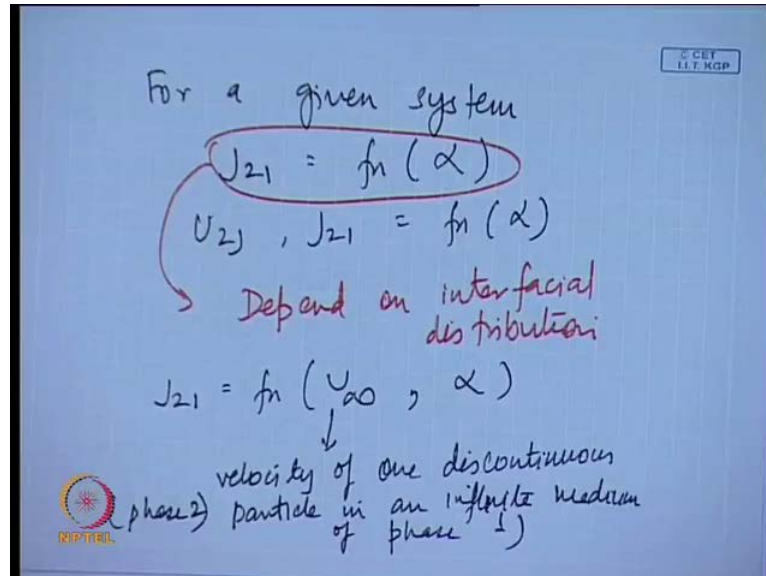 © CET
I.I.T. KGP
For a given system
J21 = fn (α)
U2J , J21 = fn (α)
Depend on interfacial
distribution
J21 = fn (U∞ , α)
velocity of one discontinuous
(phase 2) particle in an infinite medium
of phase 1)
NPTEL